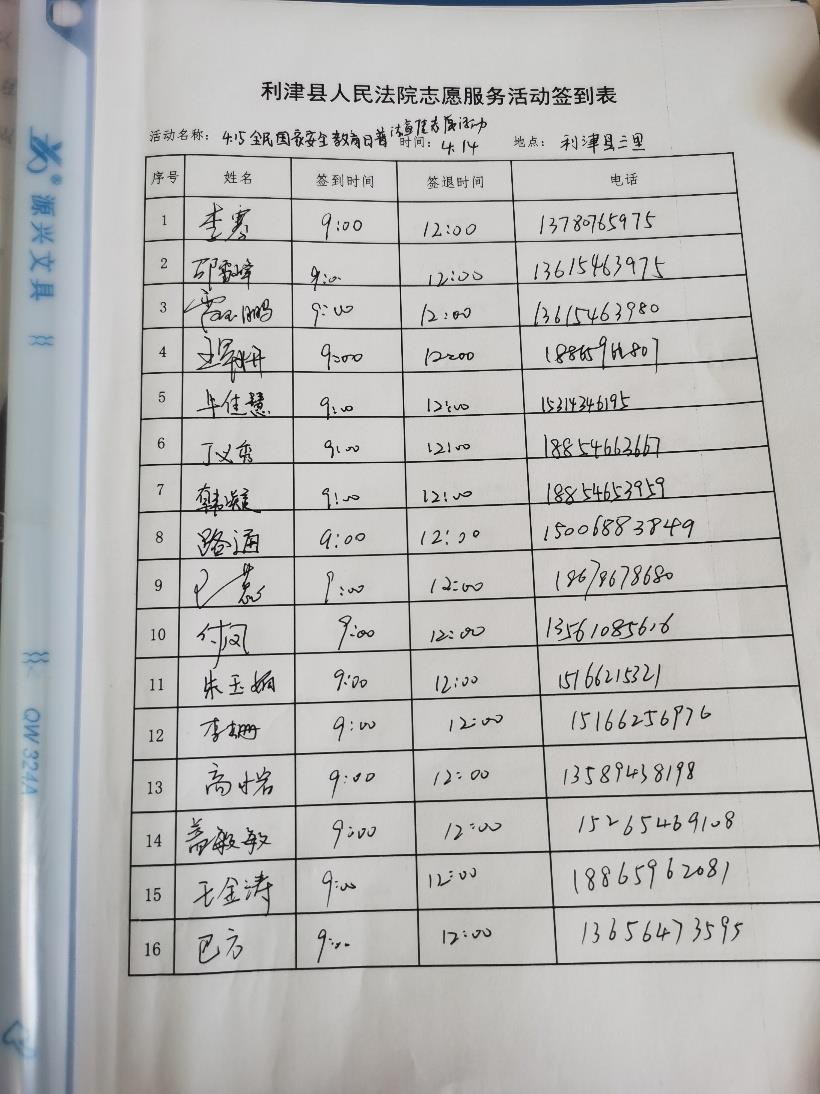 利津县人民法院志愿服务活动签到表
活动名称: 4.15全民国家安全教育日普法宣传志愿活动 时间: 4.14 地点: 利津县三里
序号 姓名 签到时间 签退时间 电话
1 李寨 9:00 12:00 13780765975
2 9:00 12:00 13615463975
3 9:00 12:00 13615463980
4 9:00 12:00
5 毕佳慧 9:00 12:00 15314346195
6 丁义秀 9:00 12:00 18854663667
7 韩凝 9:00 12:00 18854653959
8 路通 9:00 12:00 15006883849
9 9:00 12:00 18678678680
10 付闪 9:00 12:00 13561085616
11 朱玉娟 9:00 12:00 15166215321
12 李珊 9:00 12:00 15166256976
13 高小岩 9:00 12:00 13589438198
14 盖敏敏 9:00 12:00 15265469108
15 王金涛 9:00 12:00 18865962081
16 巴方 9:00 12:00 13656473595
源兴文具
QW324A